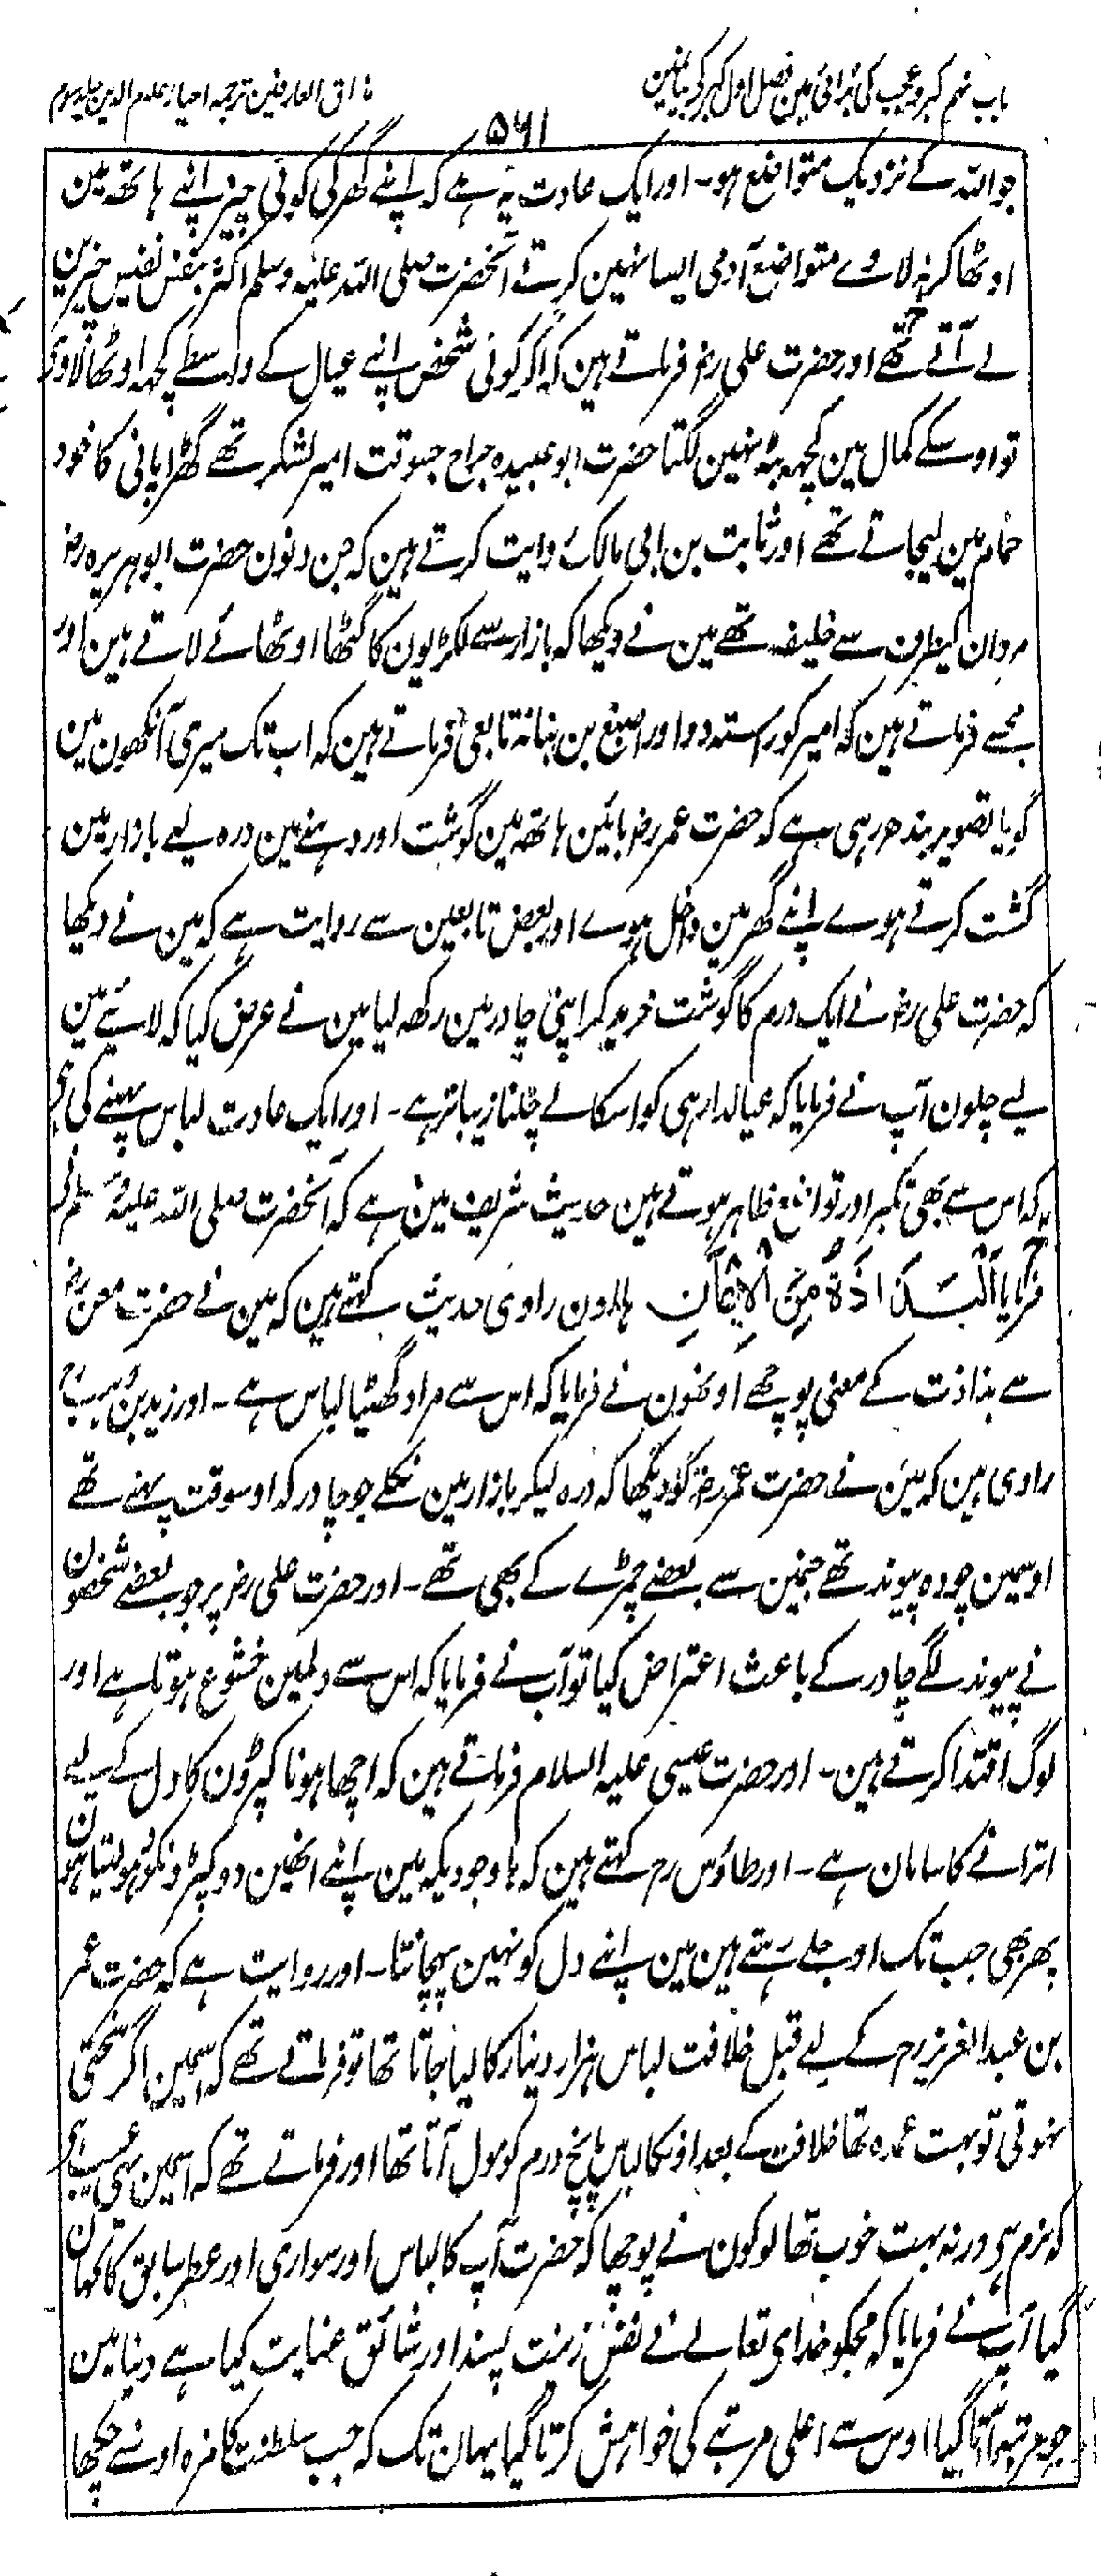 باب نہم کبر و عجب کی برائی مین فصل اول کبر کی بیانمین
مذاق العارفین ترجمہ احیاء علوم الدین جلد سوم
۵۶۱
جو اللہ کے نزدیک متواضع ہو۔ اور ایک عادت یہ ہے کہ اپنے گھر کی کوئی چیز اپنے ہاتھ مین
اوٹھا کر نہ لاوے متواضع آدمی ایسا نہین کرتے آنحضرت صلی اللہ علیہ وسلم اکثر بنفس نفیس چیزین
لے آتے تھے اور حضرت علی رضہ فرماتے ہین کہ اگر کوئی شخص اپنے عیال کے واسطے کچھہ اوٹھا لاوی
تو اوسکے کمال مین کچھہ بٹہ نہین لگتا حضرت ابو عبیدہ جراح جسوقت امیر لشکر تھے گھڑا پانی کا خود
حمام مین لیجاتے تھے اور ثابت بن ابی مالک روایت کرتے ہین کہ جن دنون حضرت ابو ہریرہ رضہ
مروان کیطرف سے خلیفہ تھے مین نے دیکھا کہ بازار سے لکڑیون کا گٹھا اوٹھائے لاتے ہین اور
مجسے فرماتے ہین کہ امیر کو رستہ دو اور اصبغ بن بنانہ تابعی فرماتے ہین کہ اب تک میری آنکھون مین
گویا تصویر بندھ رہی ہے کہ حضرت عمر رضہ بائین ہاتھ مین گوشت اور دہنے مین درہ لیے بازار مین
گشت کرتے ہوے اپنے گھر مین داخل ہوے اور بعض تابعین سے روایت ہے کہ مین نے دیکھا
کہ حضرت علی رضہ نے ایک درم کا گوشت خرید کر اپنی چادر مین رکھہ لیا مین نے عرض کیا کہ لائیے مین
لیے چلون آپ نے فرمایا کہ عیالدار ہی کو اسکا لے چلنا زیبا تر ہے۔ اور ایک عادت لباس پہننے کی ہی
کہ اس سے بھی تکبر اور تواضع ظاہر ہوتے ہین حدیث شریف مین ہے کہ آنحضرت صلی اللہ علیہ وسلم نے
فرمایا اَلْبَذَاذَةُ مِنَ الْاِیْمَانِ ہارون راوی حدیث کہتے ہین کہ مین نے حضرت معن رضہ
سے بذاذت کے معنی پوچھے اونھون نے فرمایا کہ اس سے مراد گھٹیا لباس ہے۔ اور زید بن وہب رح
راوی ہین کہ مین نے حضرت عمر رضہ کو دیکھا کہ درہ لیکر بازار مین نکلے جو چادر کہ اوسوقت پہنے تھے
اوسمین چودہ پیوند تھے جنمین سے بعضے چمڑے کے بھی تھے۔ اور حضرت علی رضہ پر جو بعضے شخصون
نے پیوند لگے چادر کے باعث اعتراض کیا تو آپ نے فرمایا کہ اس سے دلمین خشوع ہوتا ہے اور
لوگ اقتدا کرتے ہین۔ اور حضرت عیسی علیہ السلام فرماتے ہین کہ اچھا ہونا کپڑون کا دل کے لیے
اترانے کا سامان ہے۔ اور طاؤس رح کہتے ہین کہ باوجودیکہ مین اپنے انھین دو کپڑونکو دھو لیتا ہون
پھر بھی جب تک اوجلے رہتے ہین مین اپنے دل کو نہین پہچانتا۔ اور روایت ہے کہ حضرت عمر
بن عبد العزیز رح کے لیے قبل خلافت لباس ہزار دینار کا لیا جاتا تھا تو فرماتے تھے کہ اسمین اگر سختی
نہوتی تو بہت عمدہ تھا خلافت کے بعد اونکا لباس پانچ درم کو مول آتا تھا اور فرماتے تھے کہ اسمین یہی عیب ہی
کہ نرم ہی ورنہ بہت خوب تھا لوگون نے پوچھا کہ حضرت آپ کا لباس اور سواری اور عطر سابق کا کہان
گیا آپ نے فرمایا کہ مجکو خدای تعالے نے نفس زینت پسند اور شائق عنایت کیا ہے دنیا مین
جو مرتبہ آتا گیا اوس سے اعلی مرتبے کی خواہش کرتا گیا یہان تک کہ جب سلطنت کا مزہ اوسنے چکھا